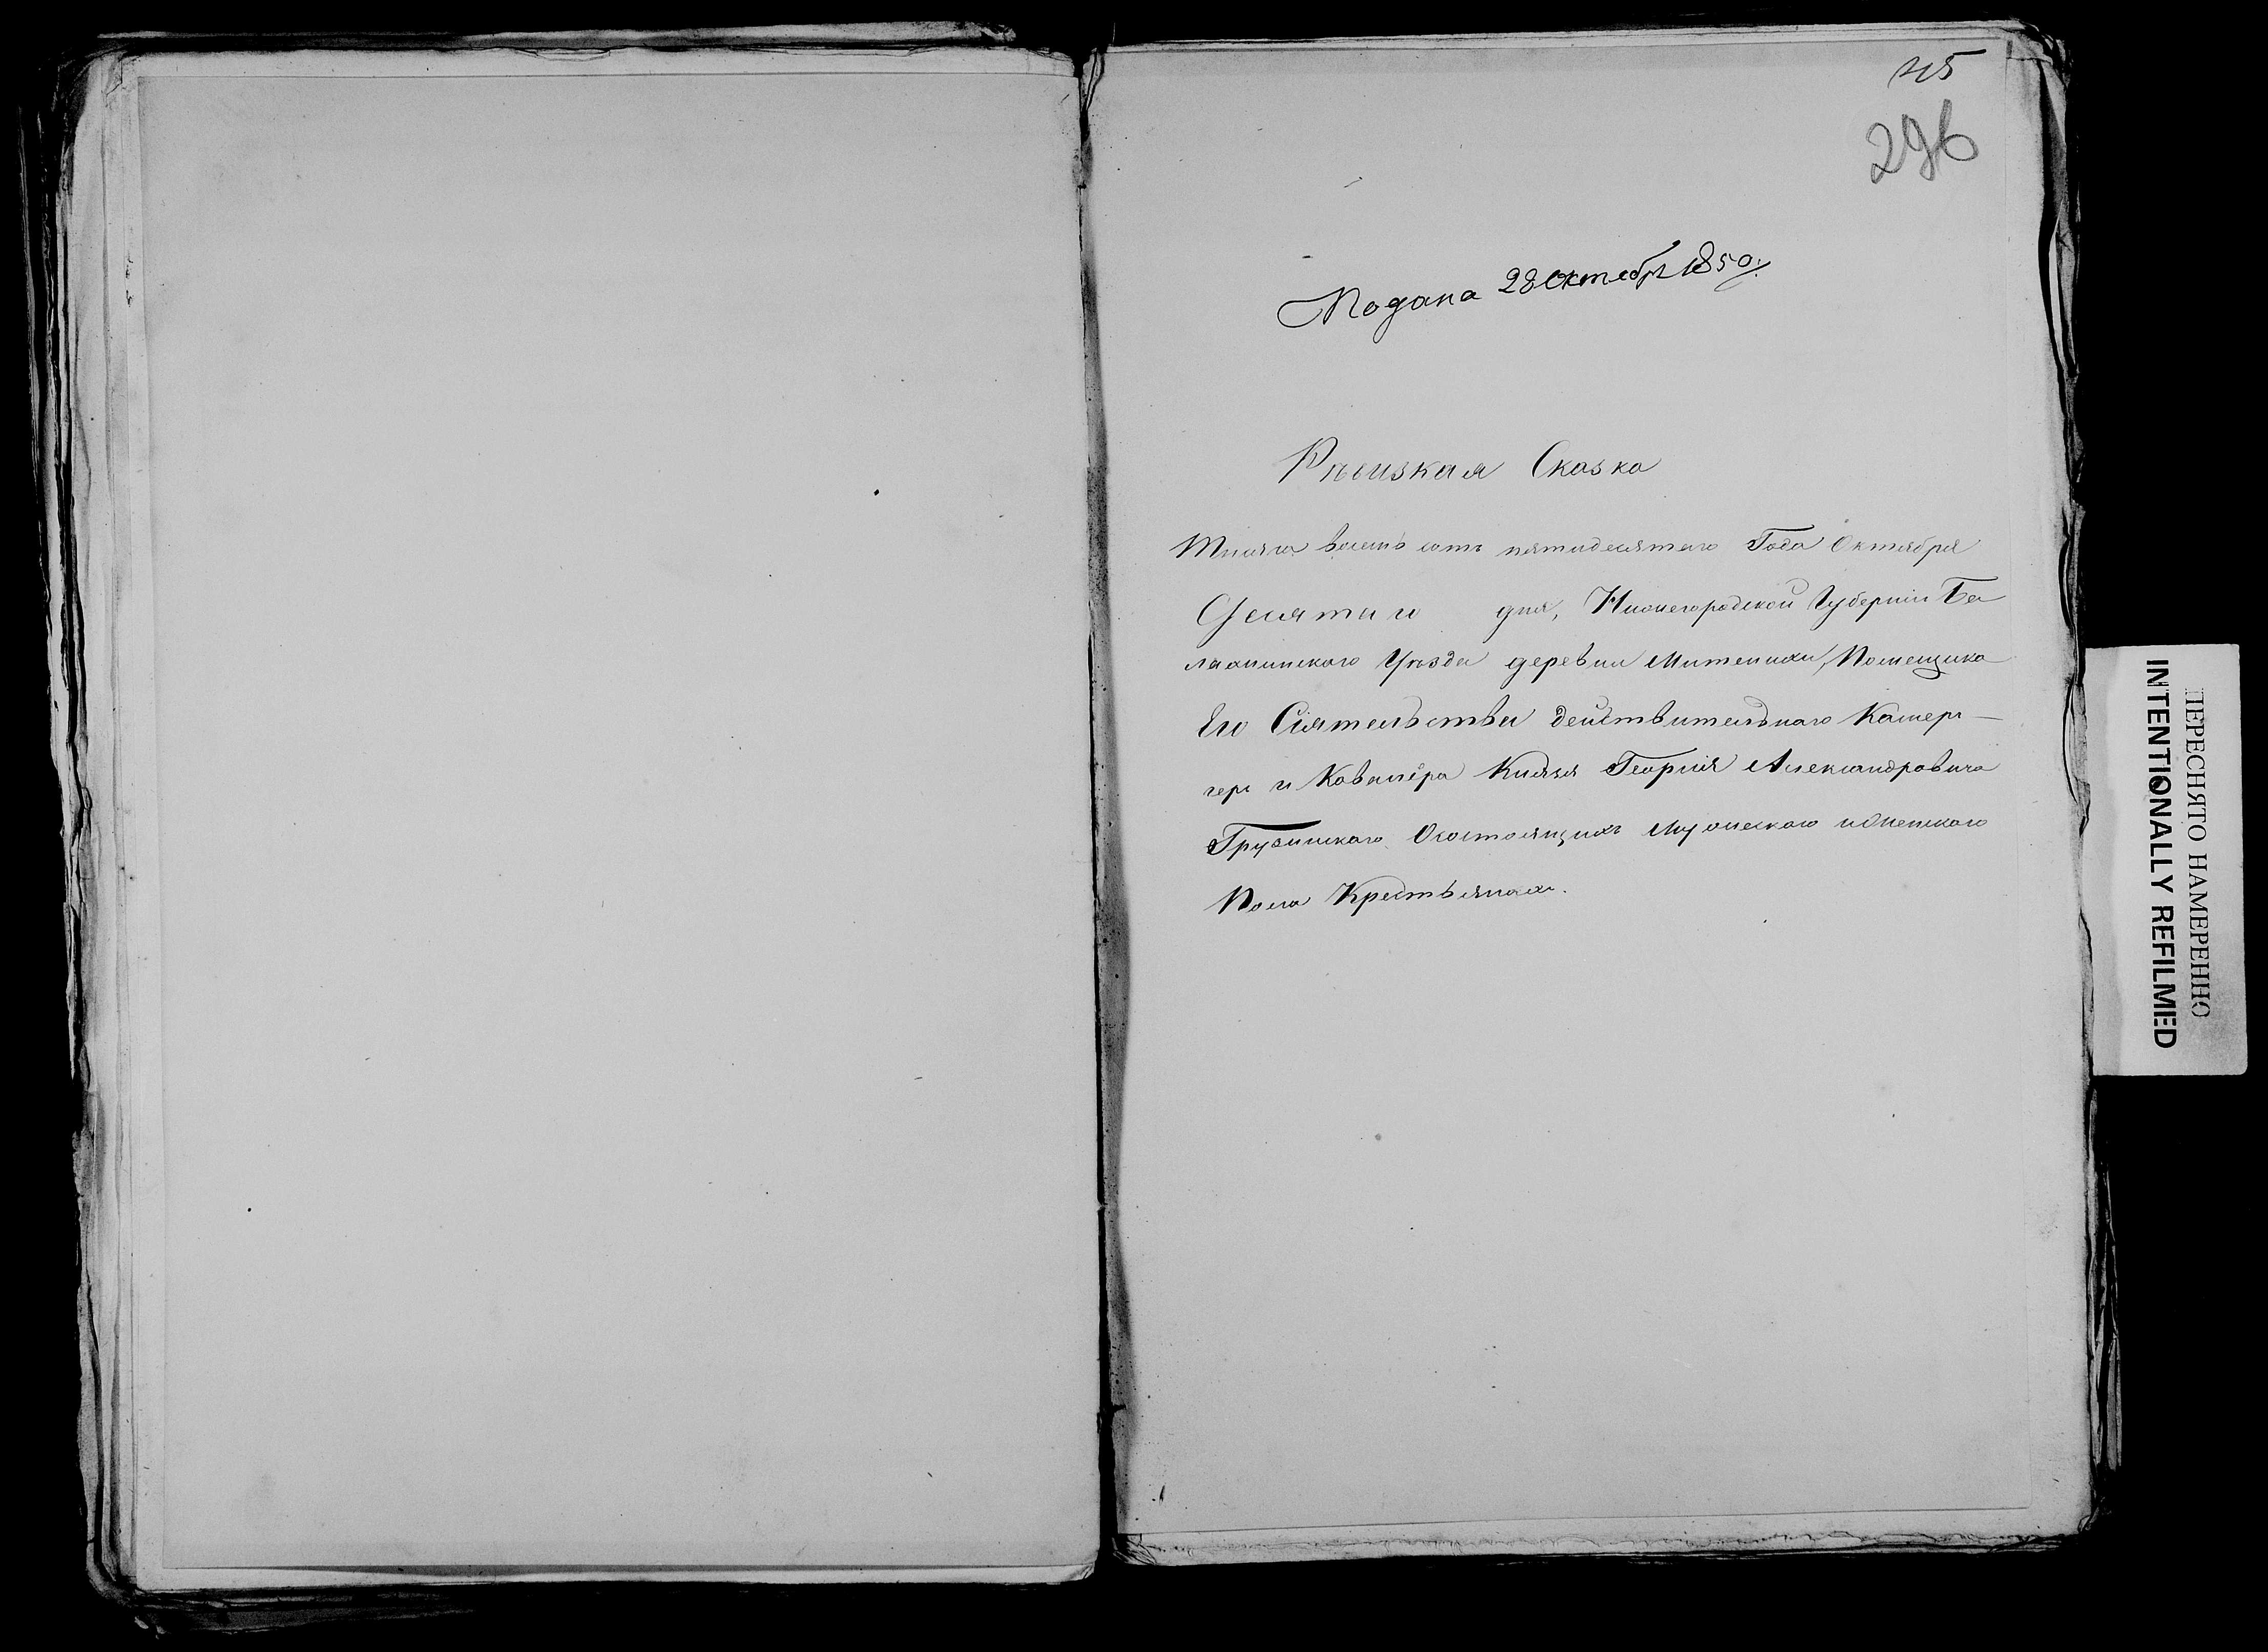 295
296
Подана 28 октебр 1850.
Рѣвизкая Сказка
Тысяча восемь сотъ пятидесятаго Года Октября
Десятаго дня, Нижегородской Губерніи Ба
лахнинскаго Уѣзда деревни Митенихи, Помещика
Его Сіятельства действительнаго Камерг-
гера и Ковалера Князя Георгія Александровича
Грузинскаго Осостоящихъ Мужескаго иЖенскаго
Пола Крестьянахъ.
ПЕРЕСНЯТО НАМЕРЕННО
INTENTIONALLY REFILMED